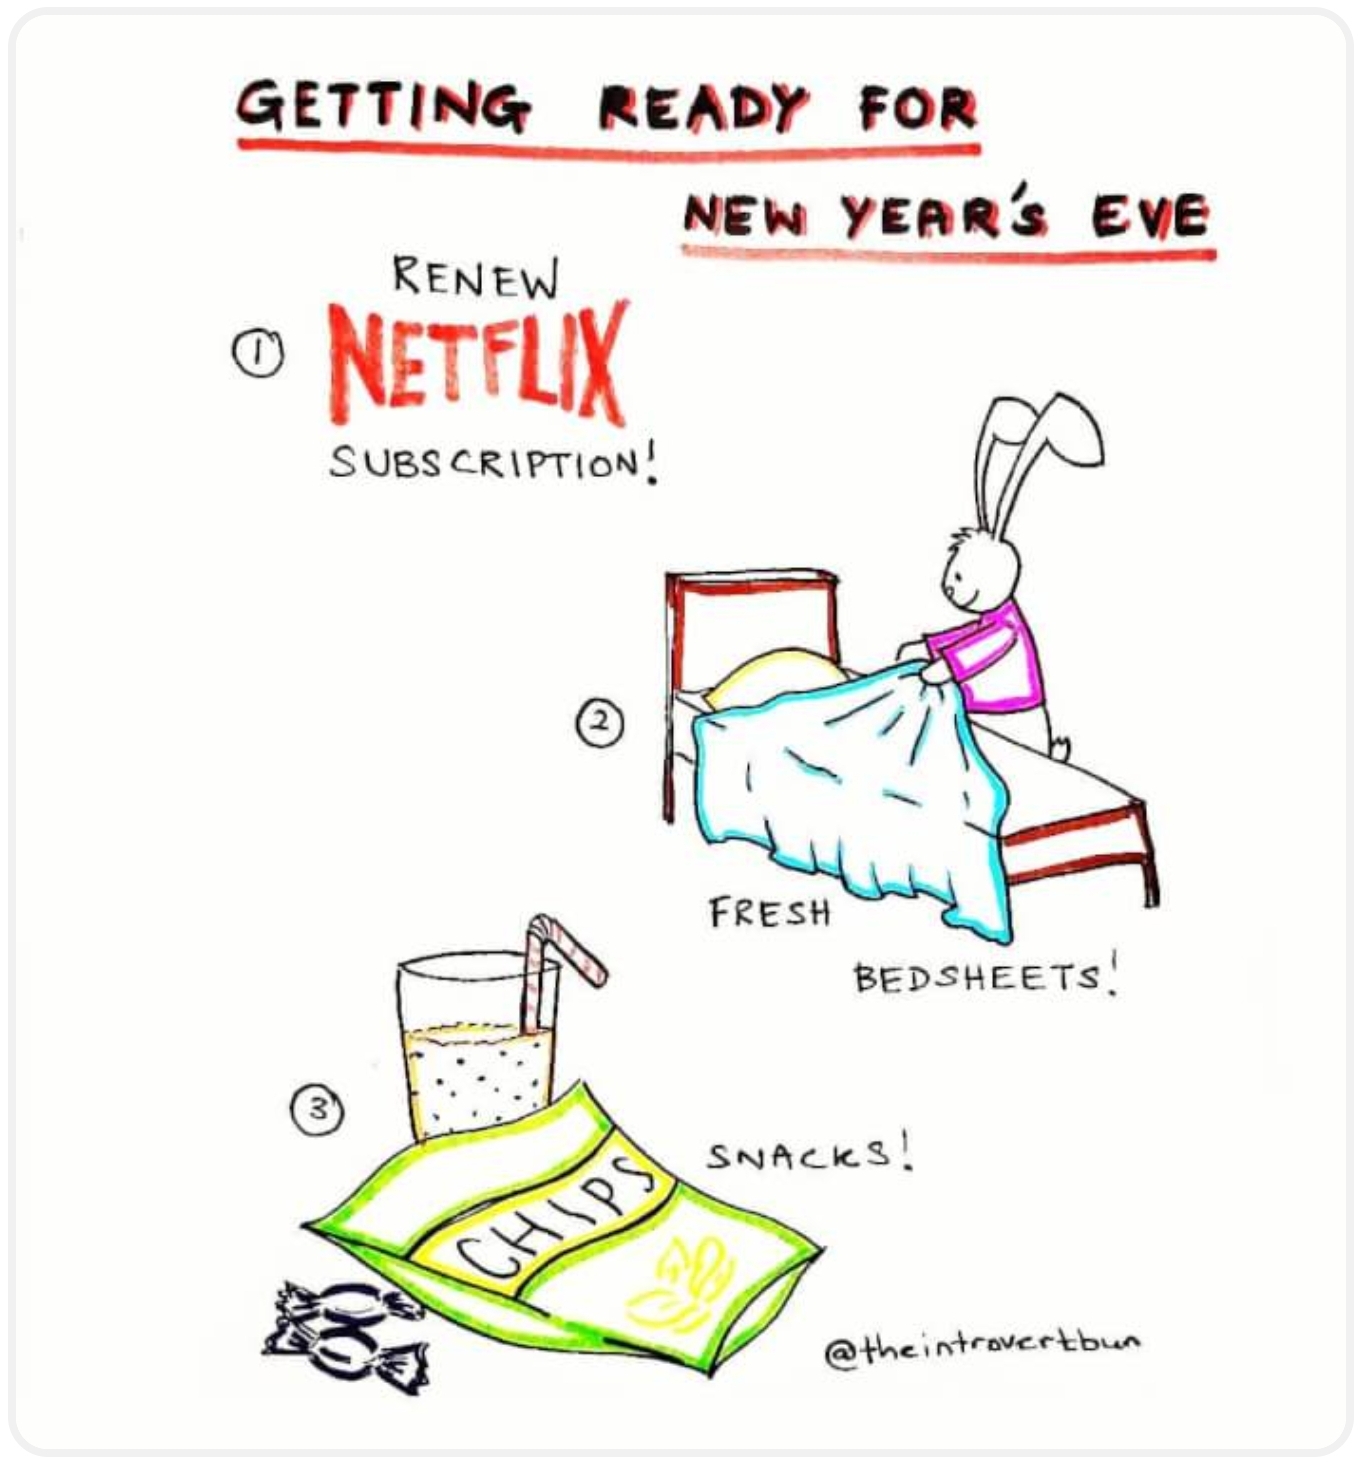 GETTING READY FOR
NEW YEAR'S EVE
1
RENEW
NETFLIX
SUBSCRIPTION!
2
FRESH
BEDSHEETS!
3
SNACKS!
CHIPS
@theintrovertbun